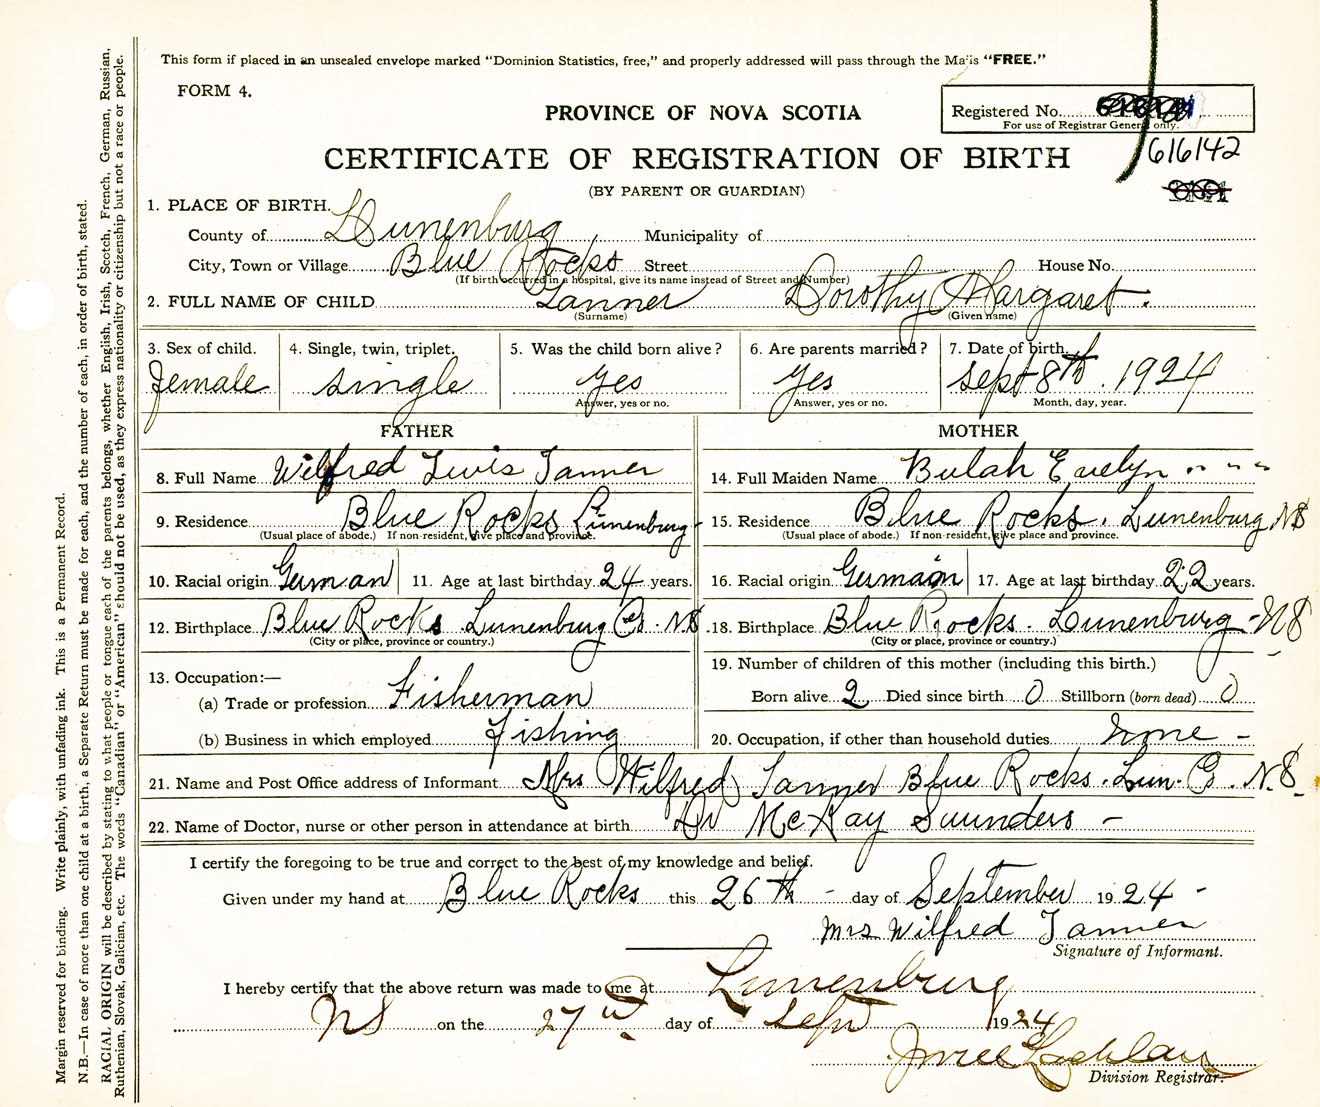 This form if placed in an unsealed envelope marked "Dominion Statistics, free," and properly addressed will pass through the Mails "FREE."
FORM 4.
PROVINCE OF NOVA SCOTIA
Registered No.
For use of Registrar General only.
616142
CERTIFICATE OF REGISTRATION OF BIRTH
(BY PARENT OR GUARDIAN)
1. PLACE OF BIRTH.
County of Lunenburg Municipality of
City, Town or Village Blue Rocks Street House No.
(If birth occurred in a hospital, give its name instead of Street and Number)
2. FULL NAME OF CHILD Tanner Dorothy Margaret.
(Surname) (Given name)
3. Sex of child. 4. Single, twin, triplet. 5. Was the child born alive? 6. Are parents married? 7. Date of birth.
female single yes yes Sept 8th. 1924
Answer, yes or no. Answer, yes or no. Month, day, year.
FATHER MOTHER
8. Full Name Wilfred Lewis Tanner 14. Full Maiden Name Bulah Evelyn " " "
9. Residence Blue Rocks Lunenburg- 15. Residence Blue Rocks. Lunenburg NS
(Usual place of abode.) If non-resident, give place and province. (Usual place of abode.) If non-resident, give place and province.
10. Racial origin German 11. Age at last birthday 24 years. 16. Racial origin German 17. Age at last birthday 22 years.
12. Birthplace Blue Rocks Lunenburg Co. NS 18. Birthplace Blue Rocks. Lunenburg-NS
(City or place, province or country.) (City or place, province or country.)
19. Number of children of this mother (including this birth.)
13. Occupation:—
(a) Trade or profession Fisherman Born alive 2 Died since birth 0 Stillborn (born dead) 0
(b) Business in which employed fishing 20. Occupation, if other than household duties none -
21. Name and Post Office address of Informant Mrs Wilfred Tanner Blue Rocks. Lun. Co. N.S.
22. Name of Doctor, nurse or other person in attendance at birth Dr McKay Saunders -
I certify the foregoing to be true and correct to the best of my knowledge and belief.
Given under my hand at Blue Rocks this 26th - day of September 1924 -
Mrs Wilfred Tanner
Signature of Informant.
I hereby certify that the above return was made to me at Lunenburg
NS on the 27th day of Sept 1924
Division Registrar.
Margin reserved for binding. Write plainly, with unfading ink. This is a Permanent Record.
N.B.—In case of more than one child at a birth, a Separate Return must be made for each, and the number of each, in order of birth, stated.
RACIAL ORIGIN will be described by stating to what people or tongue each of the parents belongs, whether English, Irish, Scotch, French, German, Russian,
Ruthenian, Slovak, Galician, etc. The words "Canadian" or "American" should not be used, as they express nationality or citizenship but not a race or people.